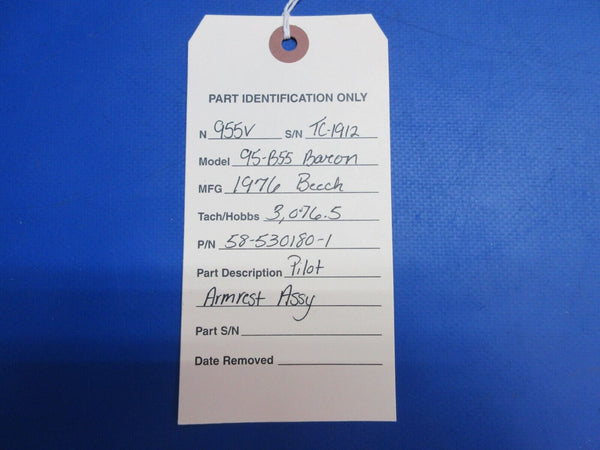 PART IDENTIFICATION ONLY
N 955V S/N TC-1912
Model 95-B55 Baron
MFG 1976 Beech
Tach/Hobbs 3,076.5
P/N 58-530180-1
Part Description Pilot
Armrest Assy
Part S/N
Date Removed